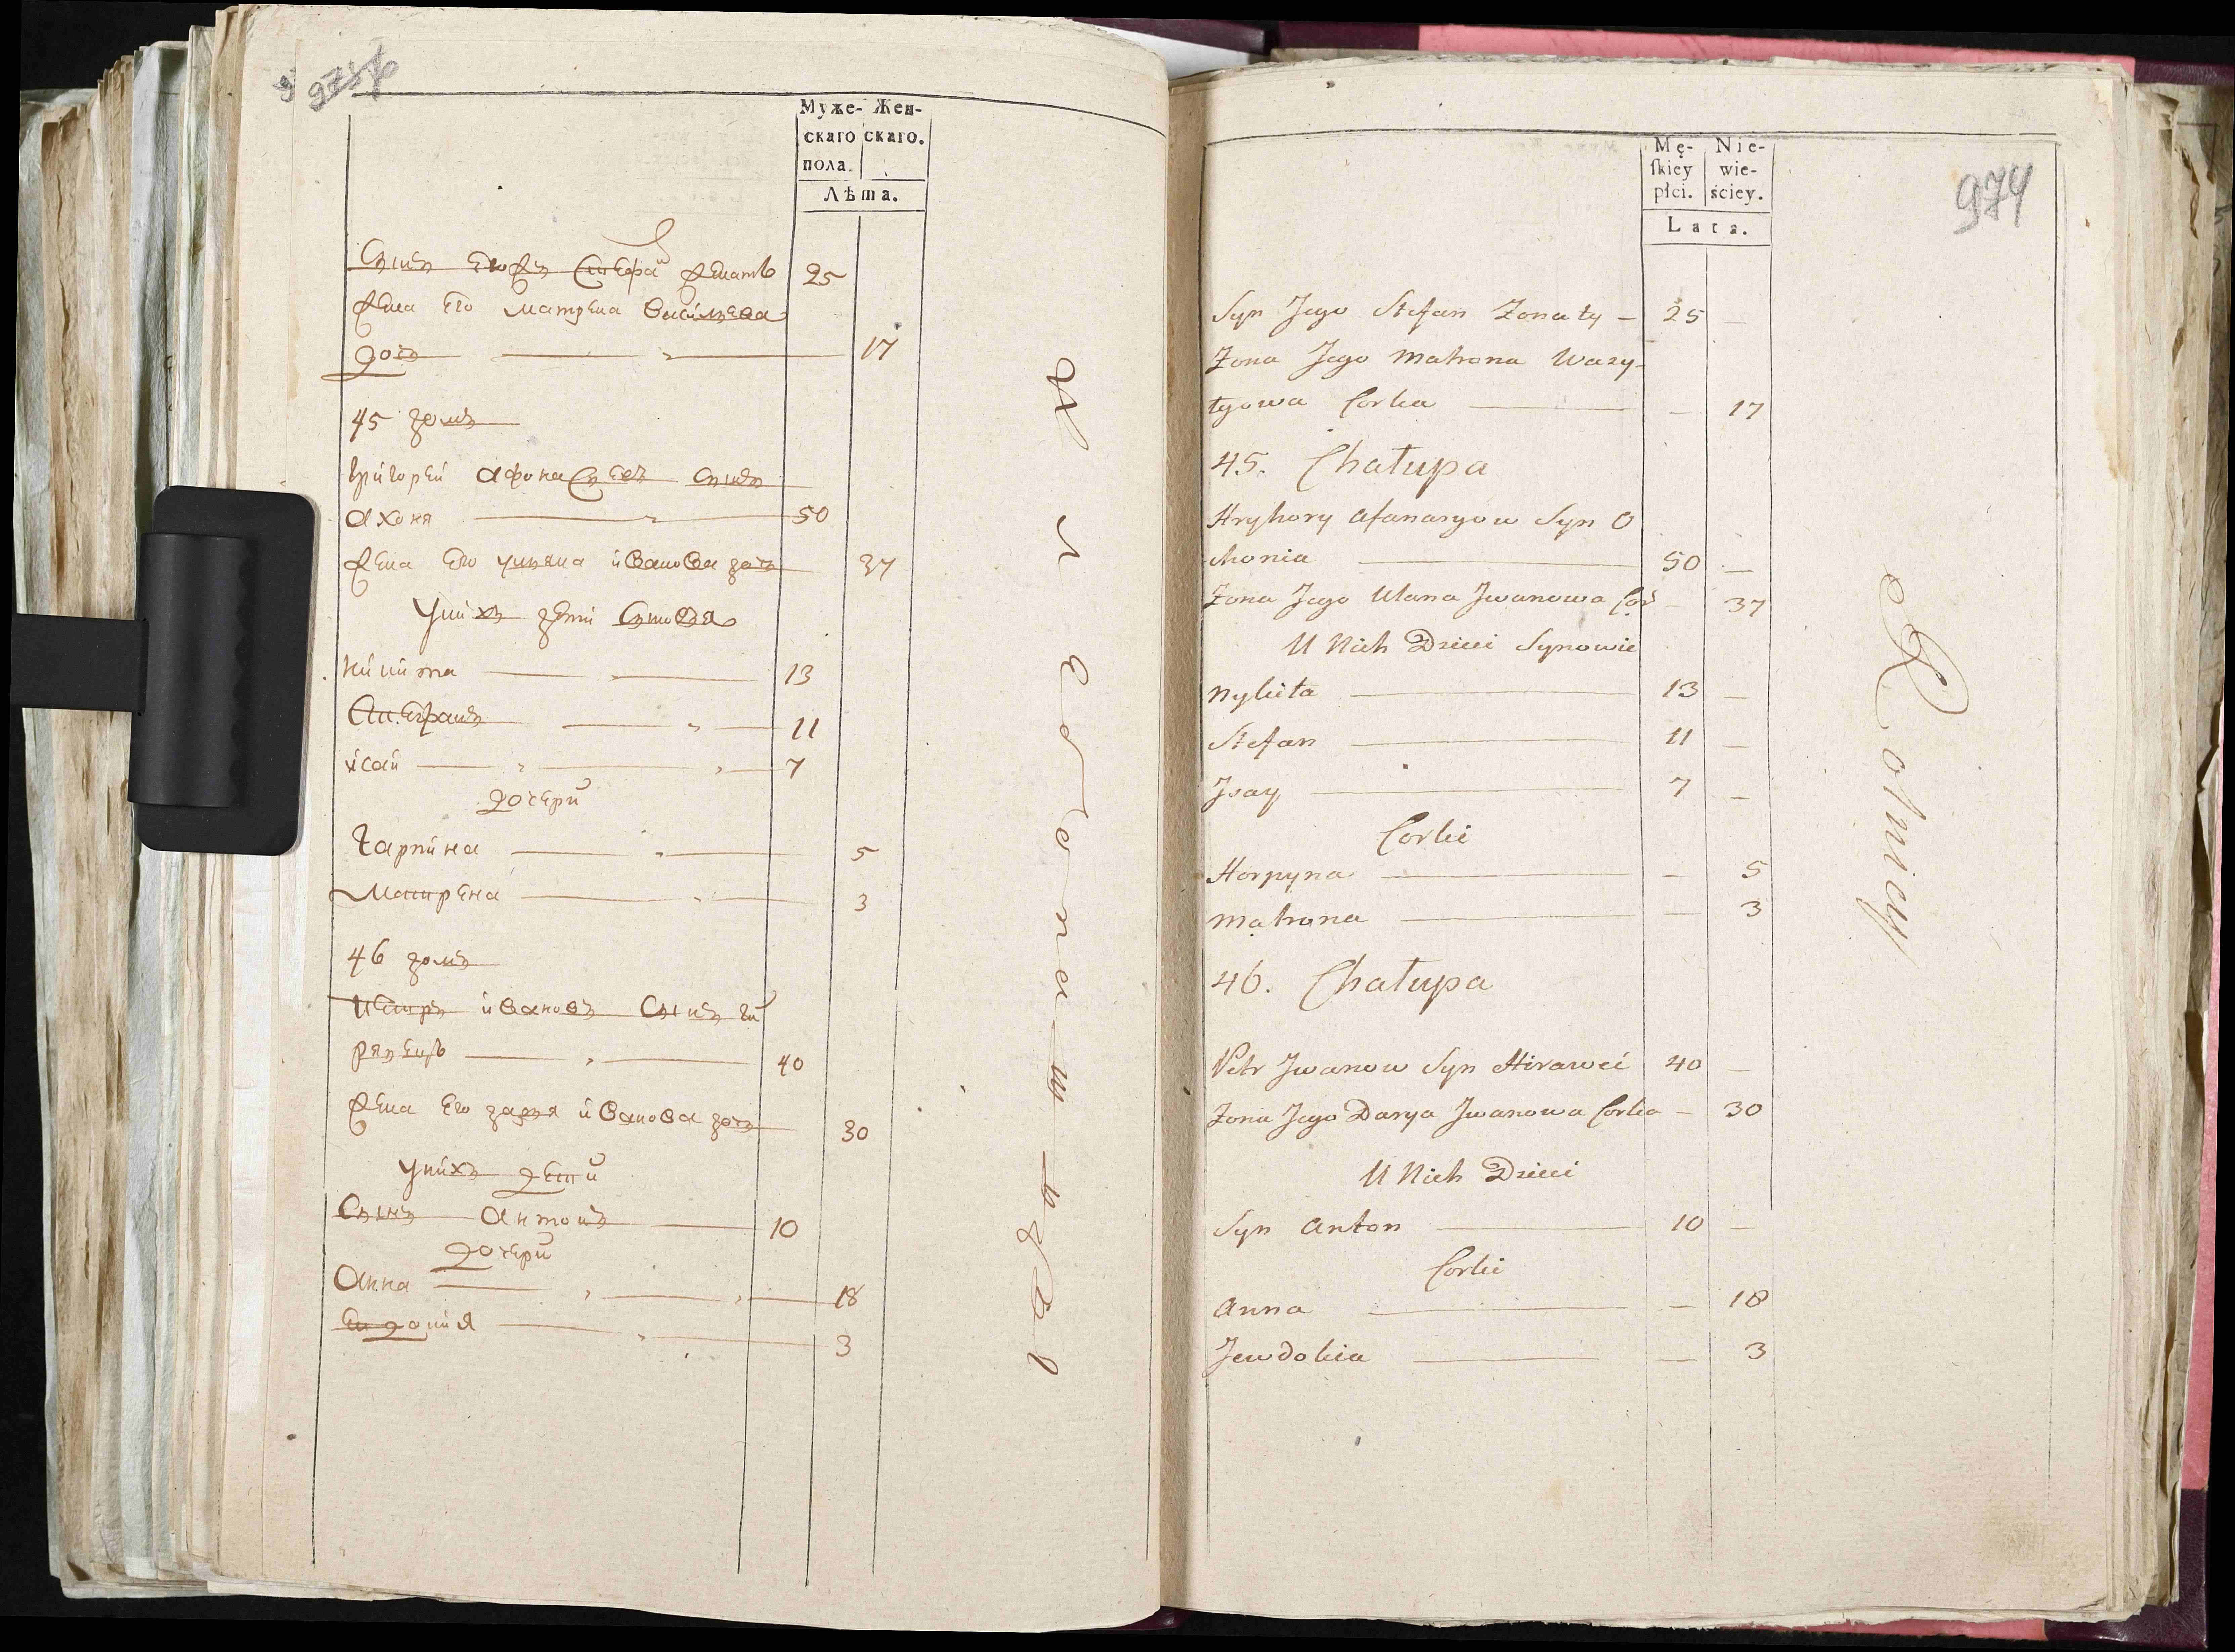 Муже- Жен-
скаго скаго.
пола.
Лѣта.
Сынъ Стефан женатъ 25
жена его матрена василева
доч 17
45 домъ
григорей афонасьев сынъ
ахоня 50
жена его ульяна иванова доч 37
у них дети сыновя
никита 13
Стефанъ 11
исай 7
дочери
гарпина 5
Матрена 3
46 домъ
Петръ ивановъ Сынъ ги
равецъ 40
жена его даря иванова доч 30
у них дети
Сынъ антонъ 10
дочери
анна 18
евдокия 3
974
Mę- Nie-
ſkiey wie-
płci. ściey.
Lata.
Syn Jego Stefan Żonaty – 25 –
Żona Jego Matrona Wasy-
lyowa Corka – 17
45. Chałupa
Hryhory Afanasyow Syn O
chonia 50 –
Żona Jego Ulana Jwanowa Cor – 37
U Nich Dzieci Synowie
Nykita 13 –
Stefan 11 –
Jsay 7 –
Corki
Horpyna – 5
Matrona – 3
46. Chałupa
Petr Jwanow Syn Hirawei 40 –
Żona Jego Darya Jwanowa Corka – 30
U Nich Dzieci
Syn Anton 10 –
Corki
Anna – 18
Jewdokia – 3
Rolnicy